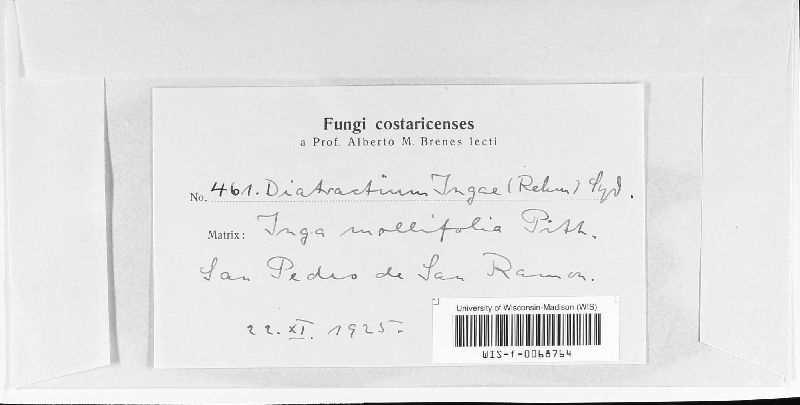 Fungi costaricenses
a Prof. Alberto M. Brenes lecti
No. 461. Diatractium Ingae (Rehm) Syd.
Matrix: Inga mollifolia Pitt.
San Pedro de San Ramon.
22. XI. 1925.
University of Wisconsin-Madison (WIS)
WIS-f-0068764